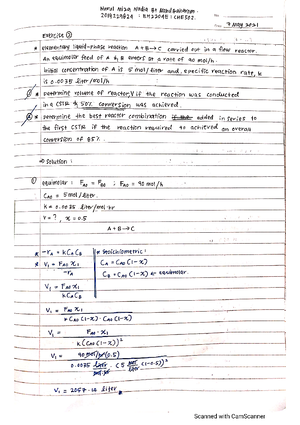 7 May 2021
Exercise 2
* elementary liquid-phase reaction A+B→C carried out in a flow reactor.
An equimolar feed of A & B enters at a rate of 90 mol/h.
Initial concentration of A is 5 mol/liter and, specific reaction rate, k
is 0.0035 liter/mol/h
determine volume of reactor, V if the reaction was conducted
in a CSTR & 50% conversion was achieved.
determine the best reactor combination if added in series to
the first CSTR if the reaction required to achieved an overall
conversion of 85%.
⇒ Solution :
① equimolar : FA0 = FB0 ; FA0 = 90 mol/h
CA0 = 5 mol/liter.
k = 0.0035 liter/mol.hr
V = ? , x = 0.5
A+B→C
* -rA = kCACB
* Stoichiometric :
* V1 = FA0 x1
-rA
CA = CA0 (1-x)
CB = CA0 (1-x) ← equimolar.
V1 = FA0 x1
kCACB
V1 = FA0 x1
k CA0 (1-x) · CA0 (1-x)
V1 = FA0 · x1
k (CA0 (1-x))²
V1 = 90 mol/h (0.5)
0.0035 liter · (5 mol (1-0.5))²
V1 = 2057.14 liter
Scanned with CamScanner